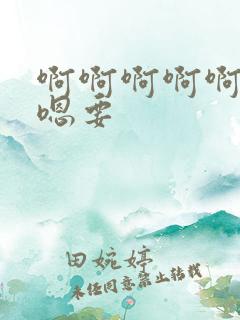 啊啊啊啊啊
嗯要
田婉婷
未经同意禁止转载